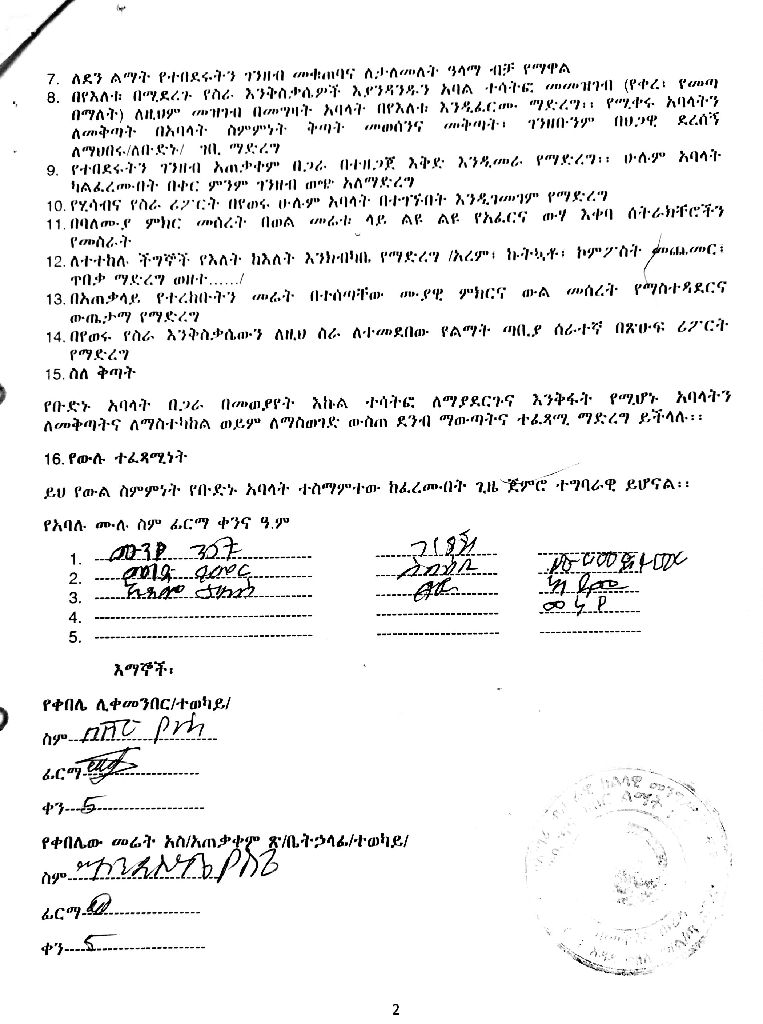 7. ለደን ልማት የተበደሩትን ገንዘብ መቁጠባና ለታለመለት ዓላማ ብቻ የማዋል
8. በየእለቱ በሚደረጉ የስራ እንቅስቃሴዎች እያንዳንዱን አባል ተሳትፎ መመዝገብ (የቀረ፣ የመጣ
በማለት) ለዚህም መዝገብ በመግዛት አባላት በየእለቱ እንዲፈርሙ ማድረግ፡፡ የሚቀሩ አባላትን
ለመቅጣት በአባላት ስምምነት ቅጣት መወሰንና መቅጣት፣ ገንዘቡንም በህጋዊ ደረሰኝ
ለማህበሩ/ለቡድኑ/ ገቢ ማድረግ
9. የተበደሩትን ገንዘብ አጠቃቀም በጋራ በተዘጋጀ እቅድ እንዲመራ የማድረግ፡፡ ሁሉም አባላት
ካልፈረሙበት በቀር ምንም ገንዘብ ወጭ አለማድረግ
10. የሂሳብና የስራ ሪፖርት በየወሩ ሁሉም አባላት በተገኙበት እንዲገመገም የማድረግ
11. በባለሙያ ምክር መሰረት በወል መሬቱ ላይ ልዩ ልዩ የአፈርና ውሃ እቀባ ስትራክቸሮችን
የመስራት
12. ለተተከሉ ችግኞች የእለት ከእለት እንክብካቤ የማድረግ /አረም፣ ኩትኳቶ፣ ኮምፖስት መጨመር፣
ጥበቃ ማድረግ ወዘተ....../
13. በአጠቃላይ የተረከቡትን መሬት በተሰጣቸው ሙያዊ ምክርና ውል መሰረት የማስተዳደርና
ውጤታማ የማድረግ
14. በየወሩ የስራ እንቅስቃሴውን ለዚህ ስራ ለተመደበው የልማት ጣቢያ ሰራተኛ በጽሁፍ ሪፖርት
የማድረግ
15. ስለ ቅጣት
የቡድኑ አባላት በጋራ በመወያየት እኩል ተሳትፎ ለማያደርጉና እንቅፋት የሚሆኑ አባላትን
ለመቅጣትና ለማስተካከል ወይም ለማስወገድ ውስጠ ደንብ ማውጣትና ተፈጻሚ ማድረግ ይችላሉ፡፡
16. የውሉ ተፈጻሚነት
ይህ የውል ስምምነት የቡድኑ አባላት ተስማምተው ከፈረሙበት ጊዜ ጀምሮ ተግባራዊ ይሆናል፡፡
የአባሉ ሙሉ ስም ፊርማ ቀንና ዓ.ም
1.
2.
3.
4.
5.
እማኞች፣
የቀበሌ ሊቀመንበር/ተወካይ/
ስም
ፊርማ
ቀን 5
የቀበሌው መሬት አስ/አጠቃቀም ጽ/ቤትኃላፊ/ተወካይ/
ስም
ፊርማ
ቀን 5
2